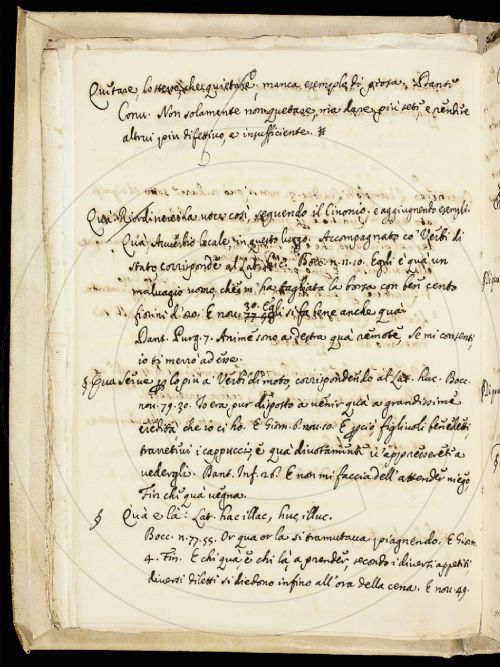 Quitare, lo stesso che quietare, manca esemplo di prosa, Dante
Conv. Non solamente non quetare, ma dare più sete, e rendere
altrui più difettivo, e insufficiente.
Quà. Riordinerei la voce così, seguendo il Cinonio, e aggiugnento esempli.
Quà Avverbio locale, in questo luogo. Accompagnato co' Verbi di
stato, corrisponde al Lat. hic. Bocc. n. 11. 10. Egli è quà un
malvagio uomo, che m' ha tagliata la borsa con ben cento
fiorini d'oro. E nov. 30. Egli si fa bene anche quà
Dant. Purg. 7. Anime sono a destra quà remote, Se mi consenti
io ti merrò ad esse.
§ Quà serve lo più a' Verbi di moto, corrispondendo al Lat. huc. Bocc.
nov. 79. 30. Io era pur disposto a venir quà a grandissime
eredità che io ci ho. E Giorn. 6. nov. 10. E però figliuoli benedetti,
trarretevi i cappucci, e quà divotamente v' appresserete a
vedergli. Dant. Inf. 26. E non mi faccia dell' attender niego,
Fin che quà vegna.
§ Quà e là. Lat. hac illac, huc, illuc.
Bocc. n. 77. 55. Or qua or la si tramutava piagnendo. E Giorn.
4. Fin. E chi quà e chi là a prender, secondo i diversi appetiti
diversi diletti si diedono infino all' ora della cena. E nov. 49.